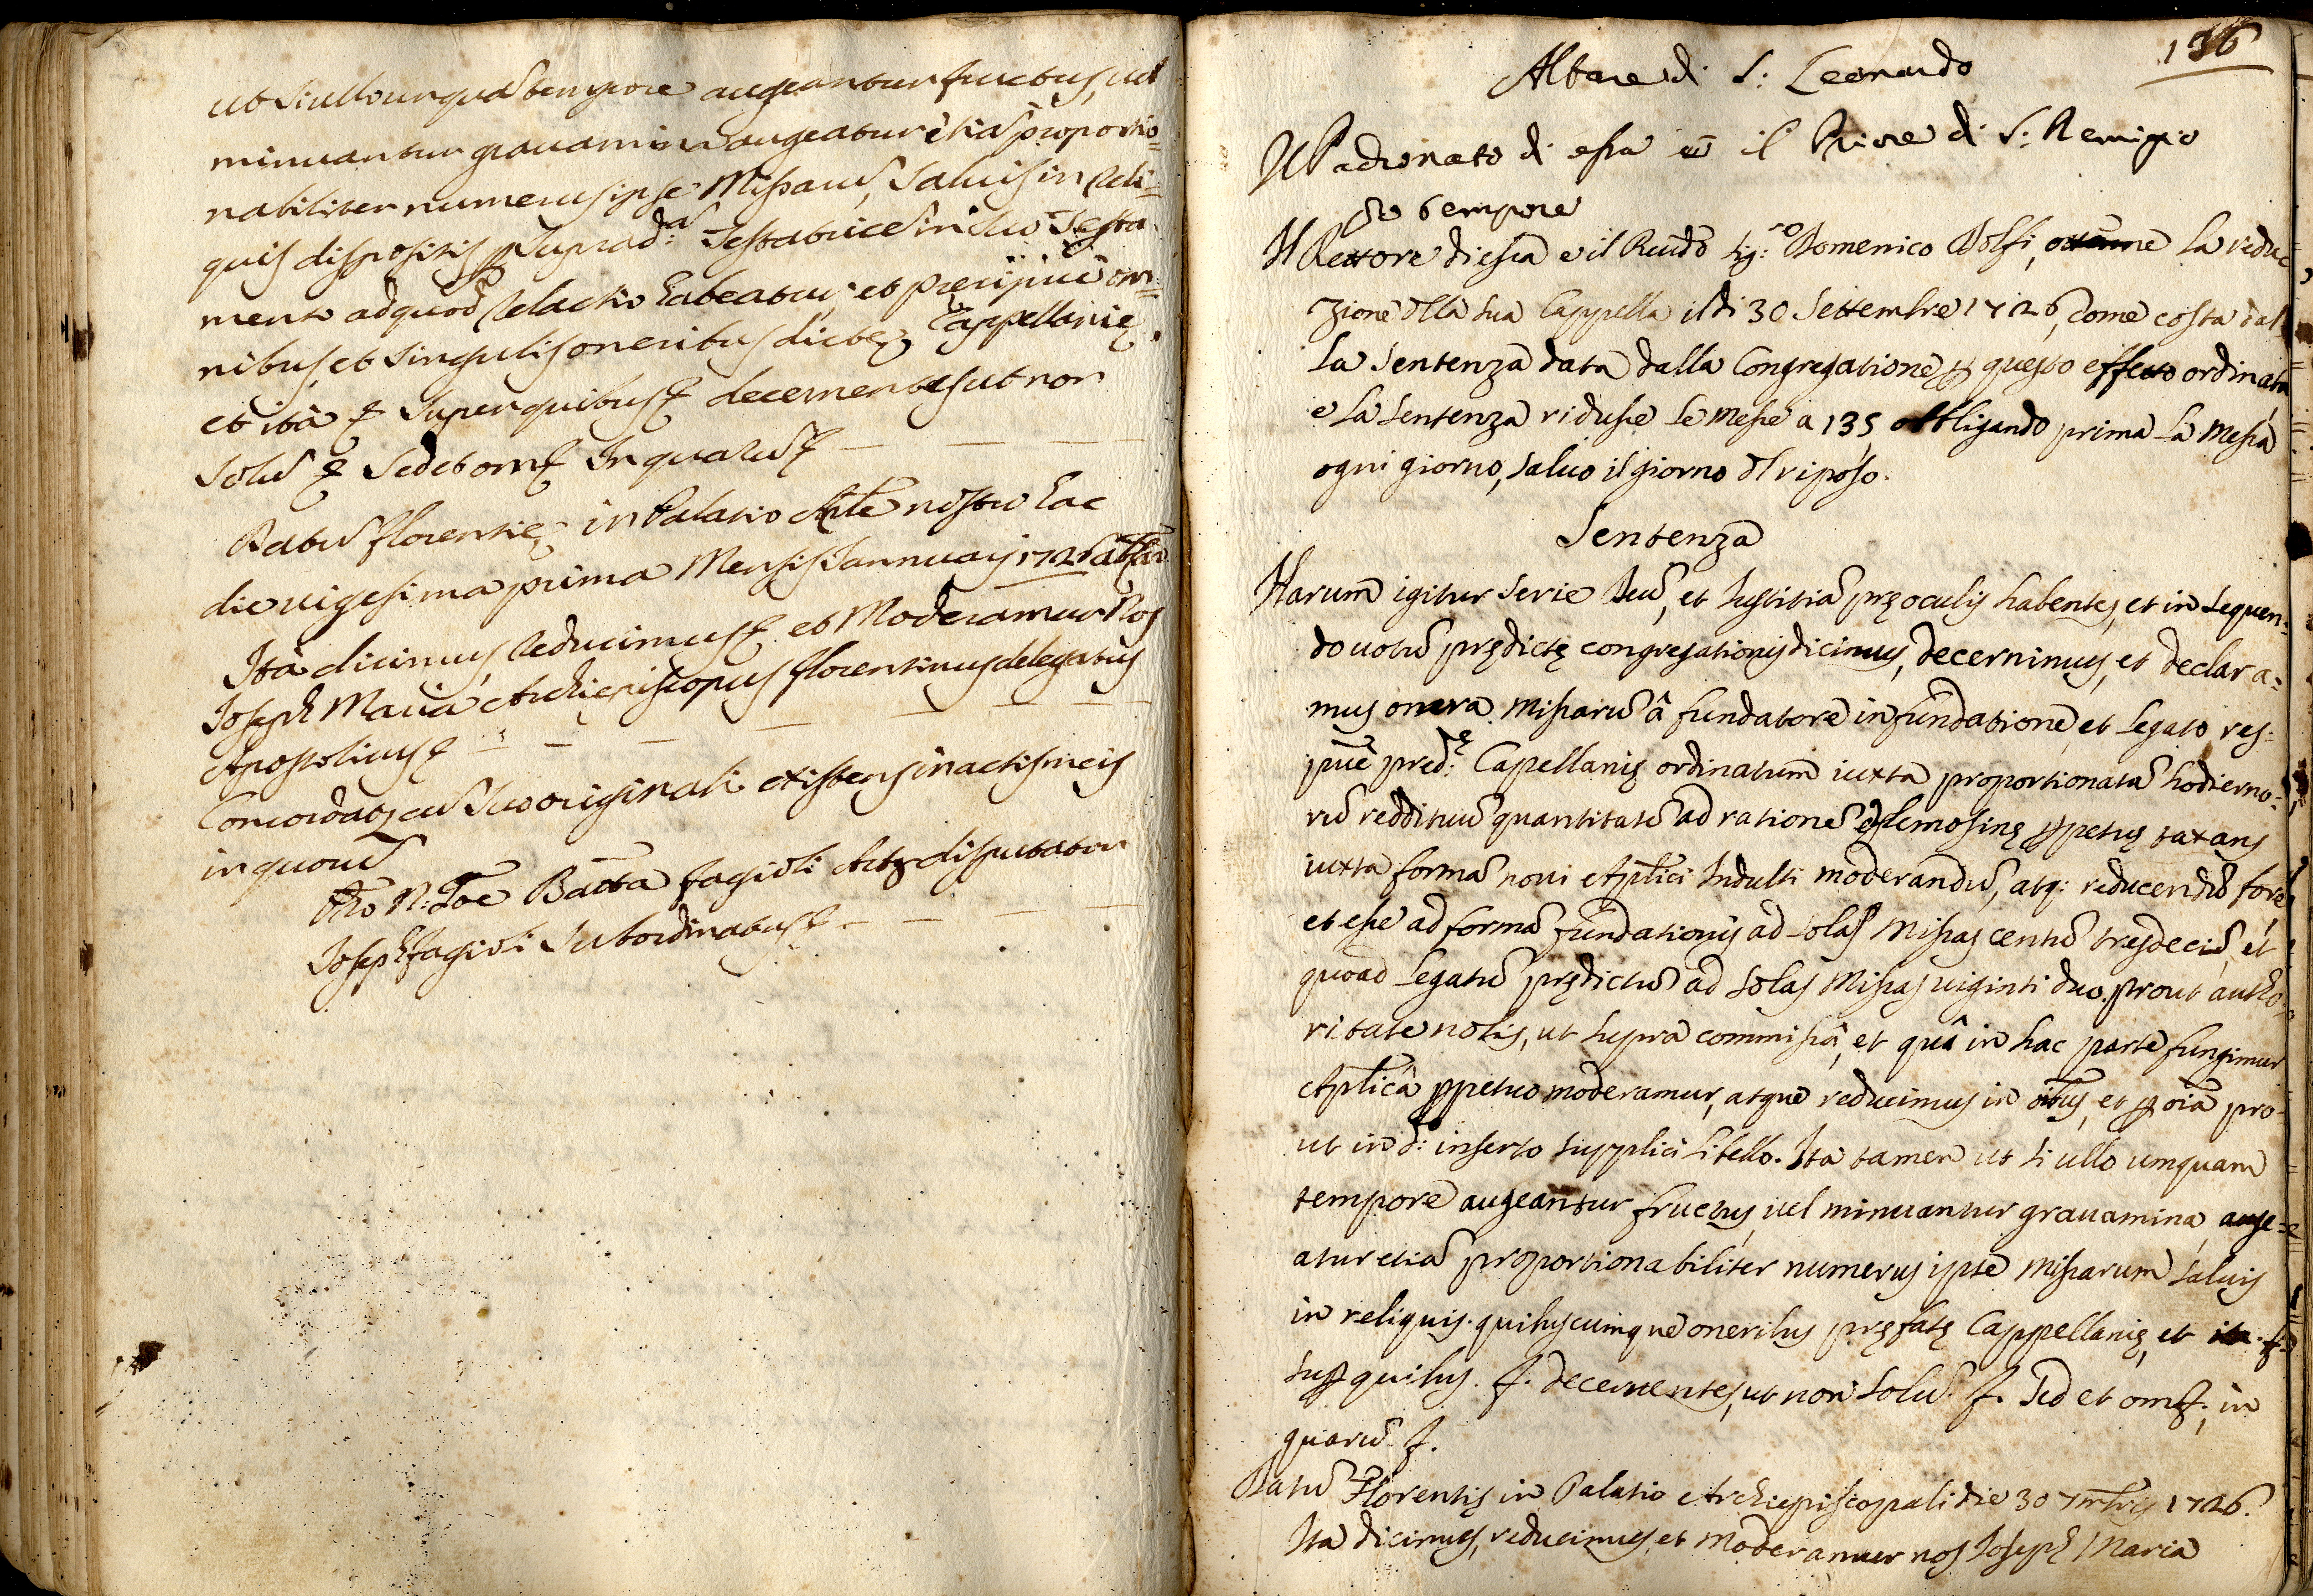 ut si ullo unqua tempore augeantur fructus, vel
minuantur gravamina augeatur etia proportio=
nabiliter numerus ipse Missaru, salvis in reli=
quis dispositis p supradª: Testatrice in suo Testa
mento ad quod relactio habeatur, et precipue om=
nibus, et singulis oneribus dictę Cappellanię.
et ità & super quibus & decernentes ut non
solu & sed et om & In quaru &
Datu florentię in Palatio Arlte nostro hac
die vigesima prima Mensis Iannuarij 1726
Ità dicimus, reducimus & et Moderamur Nos
Joseph Maria Archiepiscopus florentinus delegatus
Apostolicus &
Concordat cu suo originali existens in actis meis
in quoru
N: Joe Batta fagioli
Joseph fagioli subordinatus &
136
Altare di S: Leonardo
Il Padronato di essa è il Priore di S: Remigio
pro tempore
Il Rettore di essa è il Revdo Sig:ro Domenico Dolfi, ottenne la redu
zione dlla sua Cappella il di 30 Settembre 1726, come costa dal
la sentenza data dalla Congregatione p questo effetto ordinata
e la sentenza ridusse le messe a 135 obbligando prima la Messa
ogni giorno, salvo il giorno dl riposo.
Sentenza
Harum igitur serie Deu, et Iustitia prę oculis habentes, et in sequen=
do votu prędictę congregationis dicimus, decernimus, et declara=
mus onera Missaru â fundatore in fundatione, et legato res=
pue predę: Capellanię ordinatum iuxta proportionata hodierno=
ru reddituu quantitate ad ratione elemosinę ppetuę taxans
iuxta forma novi Aplici Indulti moderandu, atq: reducendu fore
et esse ad forma fundationis ad solas Missas centu tresdeciu, et
quoad legatu prędictu ad solas Missas viginti duo, prout autho
ritate nobis, ut supra commissâ, et quâ in hac parte fungimur
Aplicâ ppetuo moderamur, atque reducimus in oibus, et p oia pro=
ut in d: inserto supplici libello. Ita tamen ut si ullo umquam
tempore augeantur fructus, vel minuantur gravamina, auge=
atur etia proportionabiliter numerus ipse Missarum salvis
in reliquis quibuscumque oneribus pręfatę Cappellanię, et ita. &
sup quibus. &. decernentes, ut non solu. &. sed et om &., in
quaru. &.
Datu Florentię in Palatio Archiepiscopali die 30 7mbris 1726.
Ita dicimus, reducimus, et moderamur nos Joseph Maria